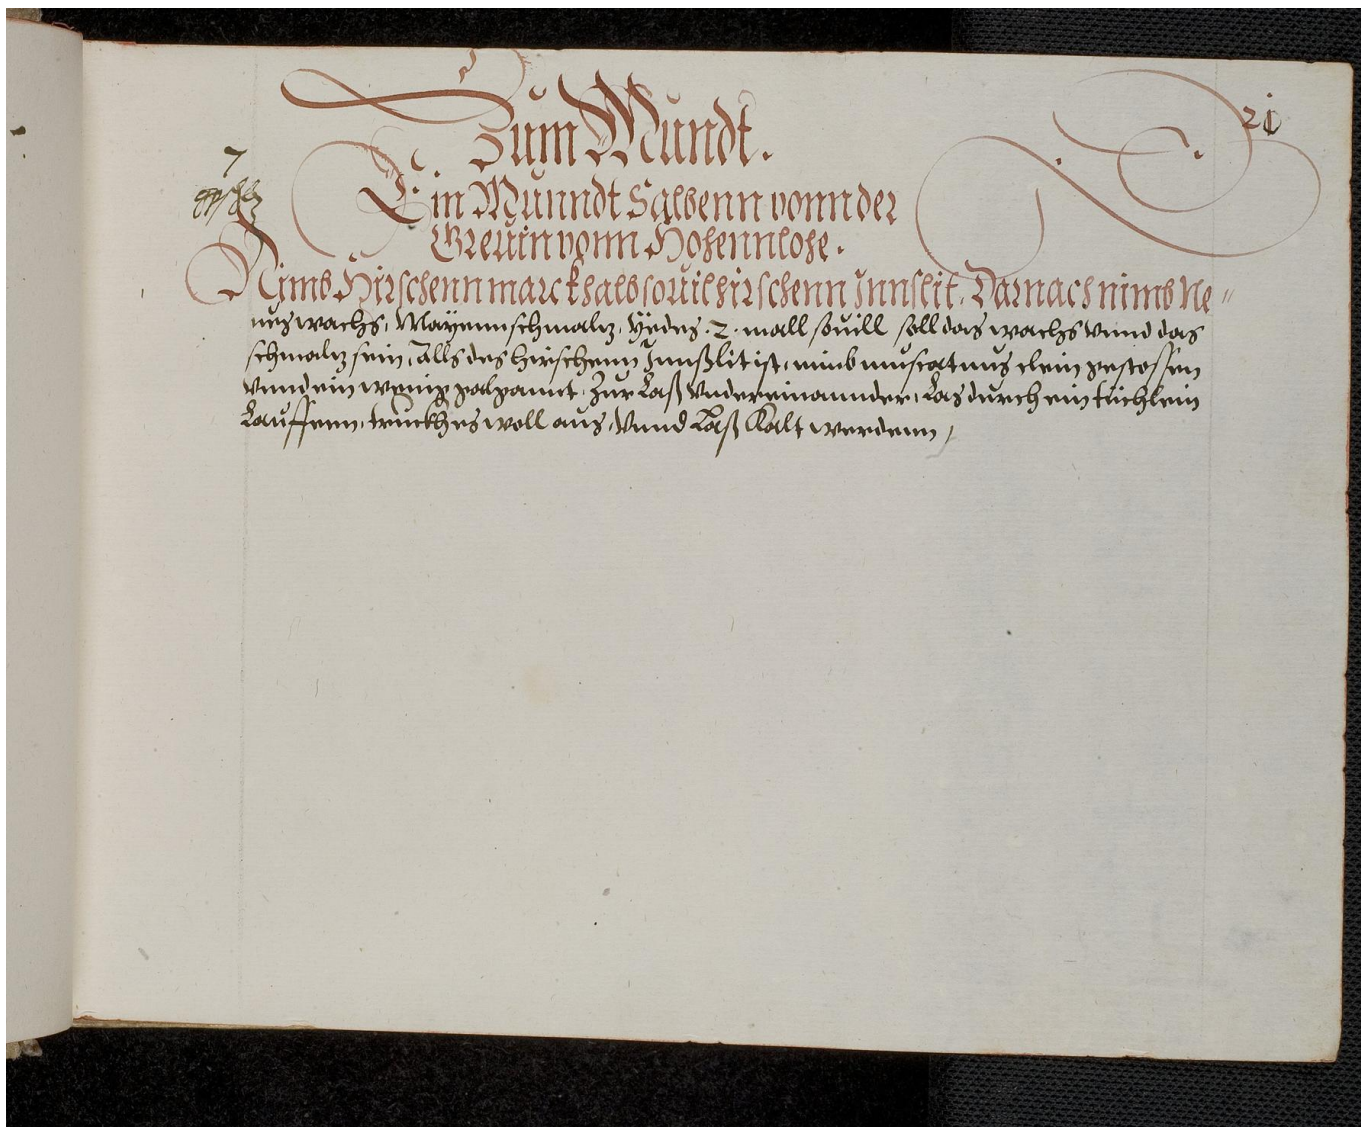 21
Zum Mundt.
7
Ein Munndt Salbenn vonn der
Grevin vonn Hohennlohe.
Nimb Hirschenn marckh halb souil hirschenn Innslit. Darnach nimb Ne〃
ues wachs, Mayenn schmaltz, Yedes .2. mall souill soll das wachs vnnd das
schmaltz sein, Alls des hirschenn Innßlit ist, nimb muscatnus clein gestossen
vnnd ein wenig Laß vndereinannder, Las durch ein tüchlein
Lauffenn, truckhes woll aus, Vnnd Laß Kalt werdenn,